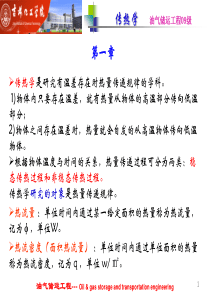 传热学
油气储运工程09级
第一章
➢传热学是研究有温差存在时热量传递规律的学科。
1)物体内只要存在温差，就有热量从物体的高温部分传向低温部分；
2)物体之间存在温差时，热量就会自发的从高温物体传向低温物体。
➢根据物体温度与时间的关系，热量传递过程可分为两类：稳态传热过程和非稳态传热过程。
传热学研究的对象是热量传递规律。
➢热流量：单位时间内通过某一给定面积的热量称为热流量，记为φ，单位W。
➢热流密度（面积热流量）：单位时间内通过单位面积的热量称为热流密度，记为q，单位w/㎡。
油气储运工程--- Oil & gas storage and transportation engineering